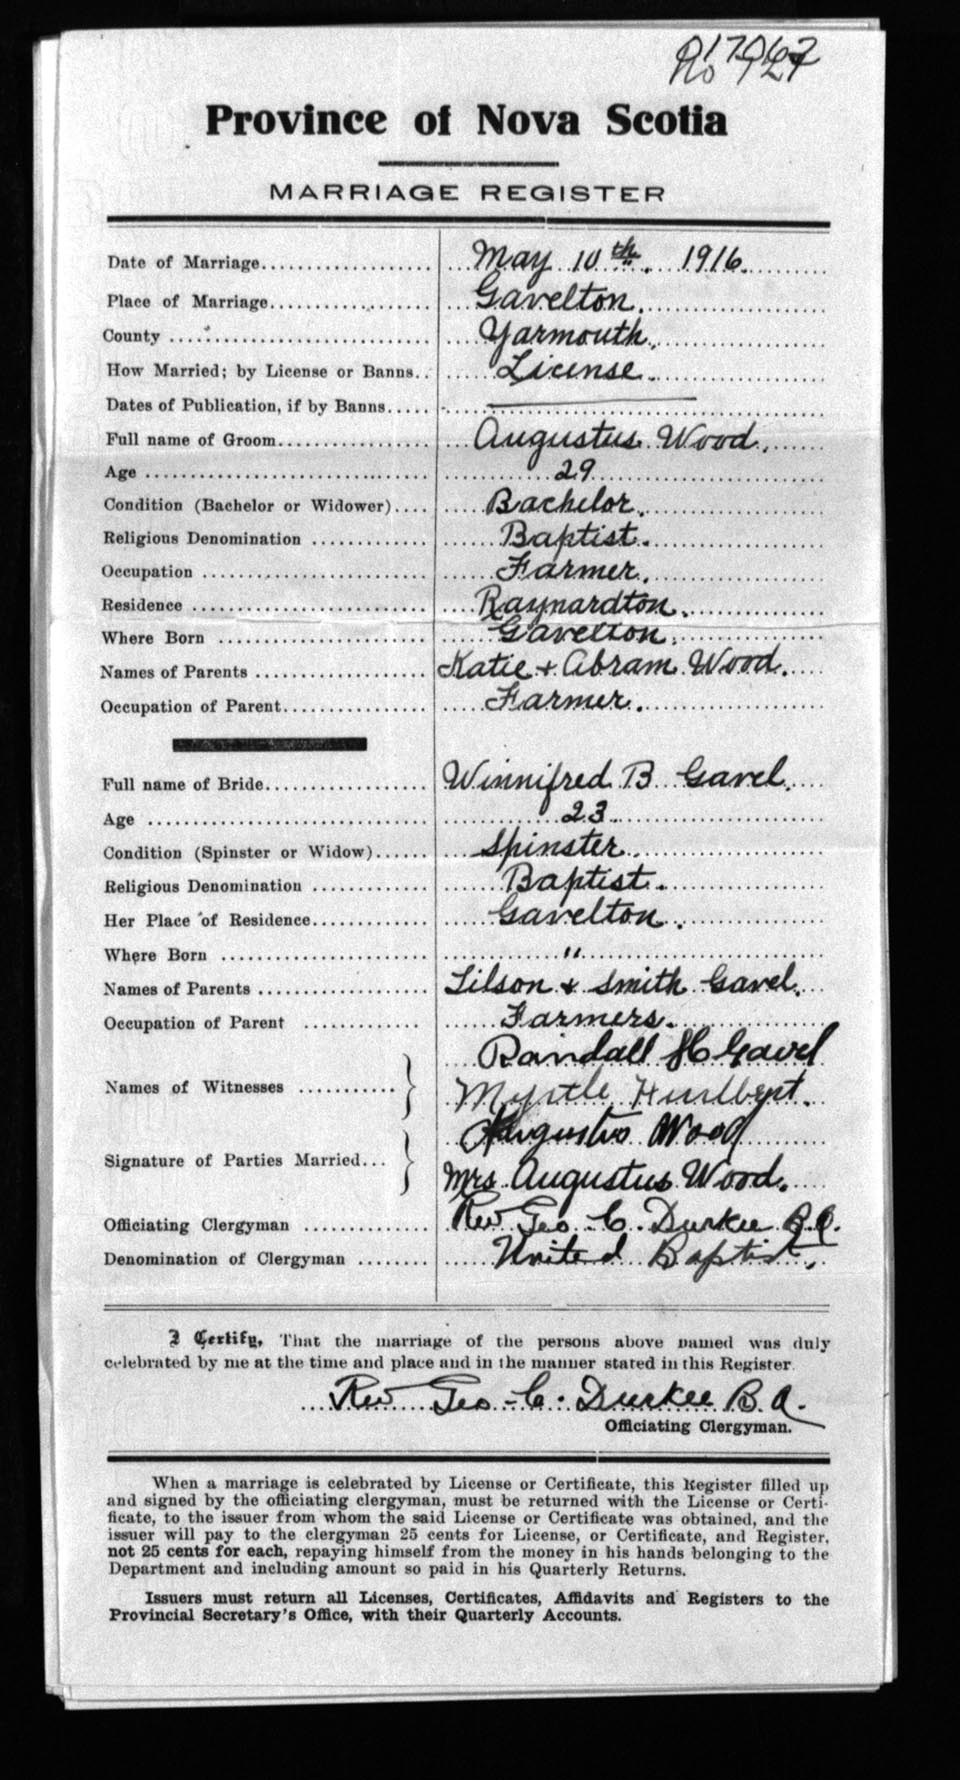 017067
No
Province of Nova Scotia
MARRIAGE REGISTER
Date of Marriage.................... May 10th. 1916.
Place of Marriage................... Gavelton.
County .............................. Yarmouth.
How Married; by License or Banns.. License.
Dates of Publication, if by Banns.....
Full name of Groom.................. Augustus Wood.
Age ................................. 29
Condition (Bachelor or Widower).... Bachelor.
Religious Denomination ............. Baptist.
Occupation .......................... Farmer.
Residence ........................... Raynardton.
Where Born ......................... Gavelton.
Names of Parents ................... Katie & Abram Wood.
Occupation of Parent................ Farmer.
Full name of Bride................... Winnifred B Gavel.
Age ................................. 23
Condition (Spinster or Widow)...... Spinster.
Religious Denomination ............. Baptist.
Her Place of Residence.............. Gavelton.
Where Born ......................... "
Names of Parents ................... Lilson & Smith Gavel.
Occupation of Parent ............. Farmers.
Names of Witnesses ........... } Randall H Gavel
Myrtle Hurlbert.
Signature of Parties Married... } Augustus Wood
Mrs Augustus Wood.
Officiating Clergyman .............. Rev Geo. C. Durkee B.A.
Denomination of Clergyman ........ United Baptist.
I Certify, That the marriage of the persons above named was duly
celebrated by me at the time and place and in the manner stated in this Register.
Rev Geo. C. Durkee B.A.
Officiating Clergyman.
When a marriage is celebrated by License or Certificate, this Register filled up
and signed by the officiating clergyman, must be returned with the License or Certi-
ficate, to the issuer from whom the said License or Certificate was obtained, and the
issuer will pay to the clergyman 25 cents for License, or Certificate, and Register,
not 25 cents for each, repaying himself from the money in his hands belonging to the
Department and including amount so paid in his Quarterly Returns.
Issuers must return all Licenses, Certificates, Affidavits and Registers to the
Provincial Secretary's Office, with their Quarterly Accounts.